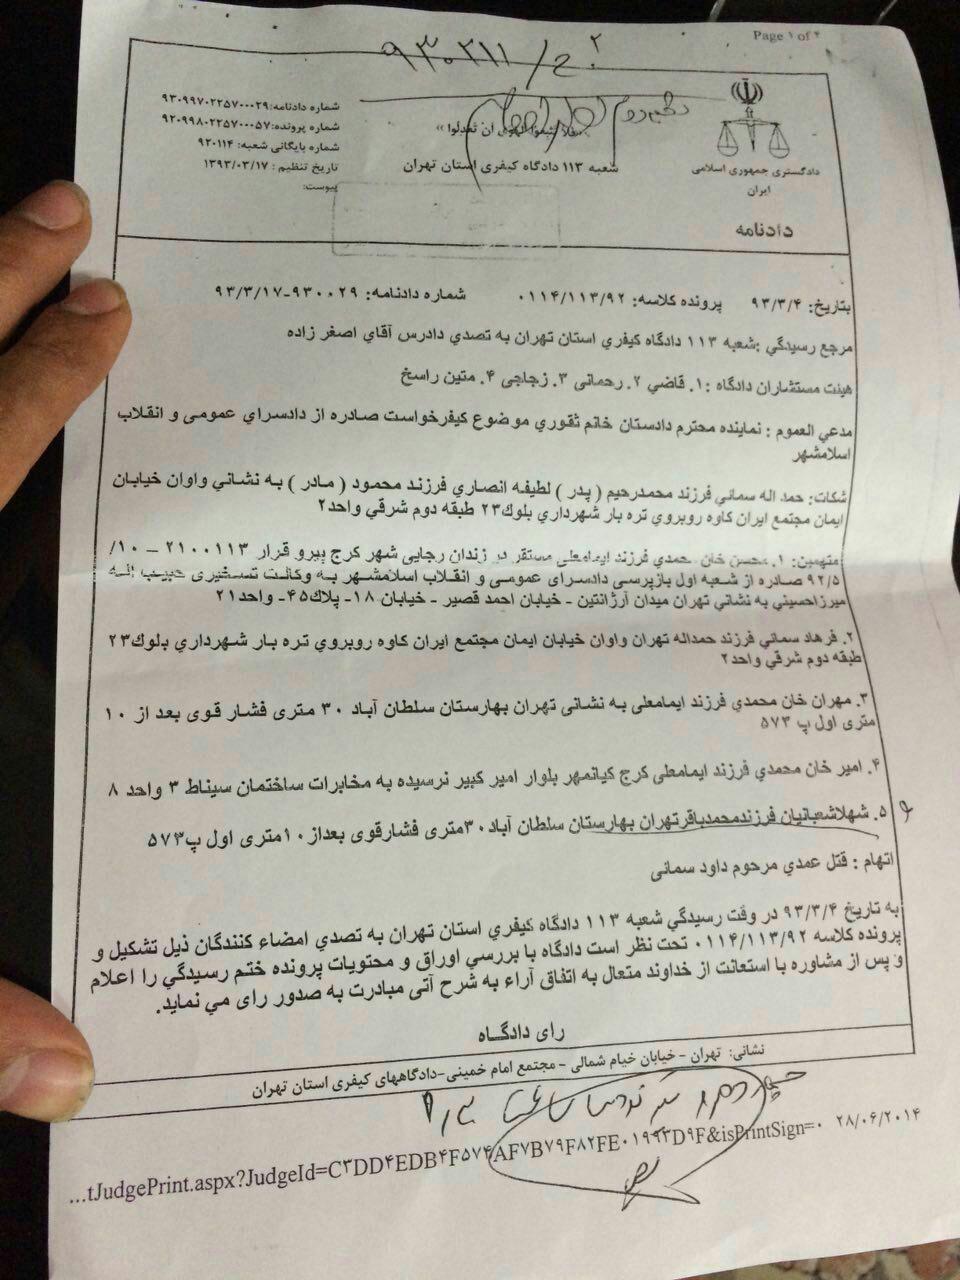 Page ۱ of ۲
۹۳۰۲۱۱/ ح ۲
شماره دادنامه:۹۳۰۹۹۷۰۲۲۵۷۰۰۰۲۹
شماره پرونده:۹۲۰۹۹۸۰۲۲۵۷۰۰۰۵۷
شماره بایگانی شعبه: ۹۲۰۱۱۴
تاریخ تنظیم : ۱۳۹۳/۰۳/۱۷
پیوست:
ان تعدلوا »
شعبه ۱۱۳ دادگاه کیفری استان تهران
دادگستری جمهوری اسلامی
ایران
دادنامه
بتاریخ: ۹۳/۳/۴ پرونده کلاسه: ۰۱۱۴/۱۱۳/۹۲ شماره دادنامه: ۹۳۰۰۲۹-۹۳/۳/۱۷
مرجع رسیدگي :شعبه ۱۱۳ دادگاه کیفري استان تهران به تصدی دادرس آقاي اصغر زاده
هیئت مستشاران دادگاه :۱. قاضي ۲. رحمانی ۳. زجاجی ۴. متین راسخ
مدعي العموم : نماینده محترم دادستان خانم ثقوري موضوع کیفرخواست صادره از دادسراي عمومی و انقلاب
اسلامشهر
شکات: حمد اله سمائي فرزند محمدرحیم ( پدر ) لطیفه انصاري فرزند محمود ( مادر ) به نشاني واوان خیابان
ایمان مجتمع ایران کاوه روبروي تره بار شهرداري بلوك۲۳ طبقه دوم شرقي واحد۲
متهمین: ۱. محسن خان حمدي فرزند ایمامعلی مستقر در زندان رجایی شهر کرج بیرو قرار ۲۱۰۰۱۱۳ – ۱۰/
۹۲/۵ صادره از شعبه اول بازپرسی دادسرای عمومی و انقلاب اسلامشهر به وکالت تسخیری حبیب اله
میرزاحسیني به نشاني تهران میدان آرژانتین - خیابان احمد قصیر - خیابان ۱۸- پلاك۴۵- واحد۲۱
۲. فرهاد سمائي فرزند حمداله تهران واوان خیابان ایمان مجتمع ایران کاوه روبروي تره بار شهرداري بلوك۲۳
طبقه دوم شرقي واحد۲
۳. مهران خان محمدي فرزند ایمامعلی به نشانی تهران بهارستان سلطان آباد ۳۰ متری فشار قوی بعد از ۱۰
متری اول پ ۵۷۳
۴. امیر خان محمدي فرزند ایمامعلی کرج کیانمهر بلوار امیر کبیر نرسیده به مخابرات ساختمان سیناط ۳ واحد ۸
۵. شهلاشعبانیان فرزندمحمدباقرتهران بهارستان سلطان آباد۳۰متری فشارقوی بعداز۱۰متری اول پ۵۷۳
اتهام : قتل عمدي مرحوم داود سمائی
به تاریخ ۹۳/۳/۴ در وقت رسیدگي شعبه ۱۱۳ دادگاه کیفري استان تهران به تصدي امضاء کنندگان ذیل تشکیل و
پرونده کلاسه ۰۱۱۴/۱۱۳/۹۲ تحت نظر است دادگاه با بررسي اوراق و محتویات پرونده ختم رسیدگي را اعلام
و پس از مشاوره با استعانت از خداوند متعال به اتفاق آراء به شرح آتی مبادرت به صدور رای مي نماید.
رای دادگاه
نشانی: تهران - خیابان خیام شمالی - مجتمع امام خمینی-دادگاههای کیفری استان تهران
...tJudgePrint.aspx?JudgeId=C۳DD۴EDB۴F۵۷۴AF۷B۷۹F۸۲FE۰۱۹۹۳D۹F&isPrintSign=۰ ۲۸/۰۶/۲۰۱۴